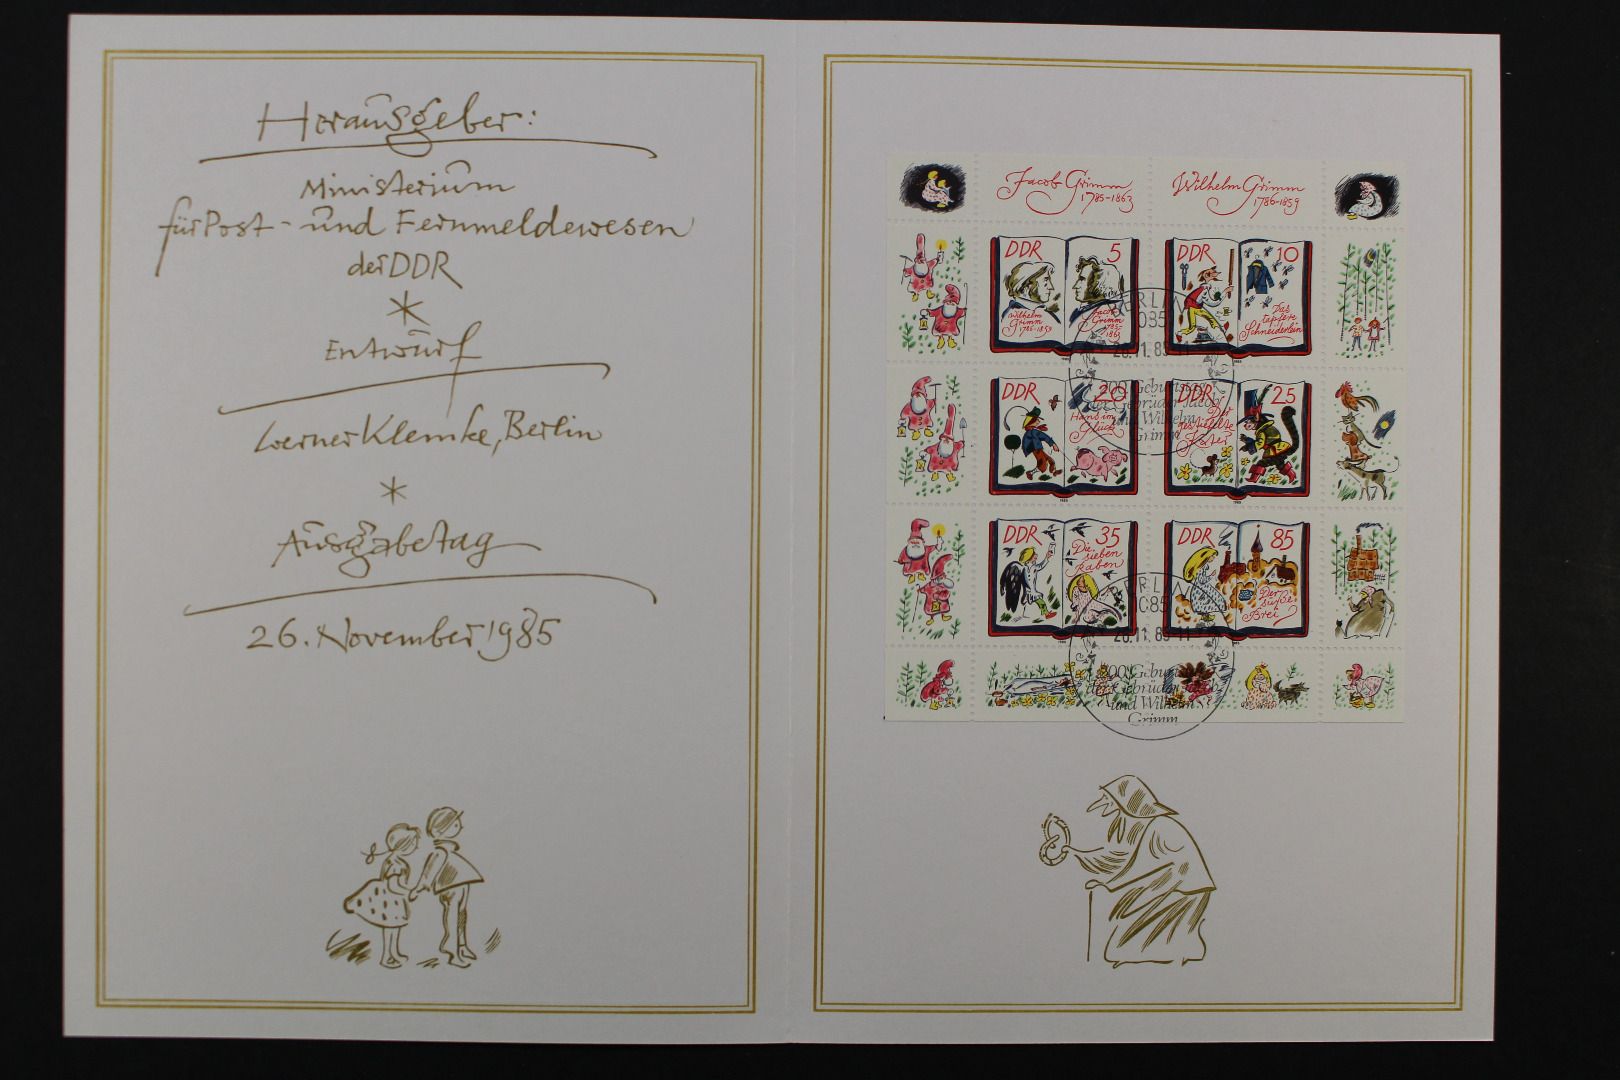 Herausgeber:
Ministerium
für Post- und Fernmeldewesen
der DDR
*
Entwurf
Werner Klemke, Berlin
*
Ausgabetag
26. November 1985
Jacob Grimm
1785-1863
Wilhelm Grimm
1786-1859
DDR 5
Wilhelm
Grimm
1786-1859
Jacob
Grimm
1785-
1863
DDR 10
Das
tapfere
Schneiderlein
DDR 20
Hans im
Glück
DDR 25
Der
gestiefelte
Kater
DDR 35
Die
sieben
Raben
DDR 85
Der
süße
Brei
BERLIN
1085
26.11.85-11
200. Geburtstag
der Gebrüder Jacob
und Wilhelm
Grimm
BERLIN
1085
26.11.85-11
200. Geburtstag
der Gebrüder Jacob
und Wilhelm
Grimm